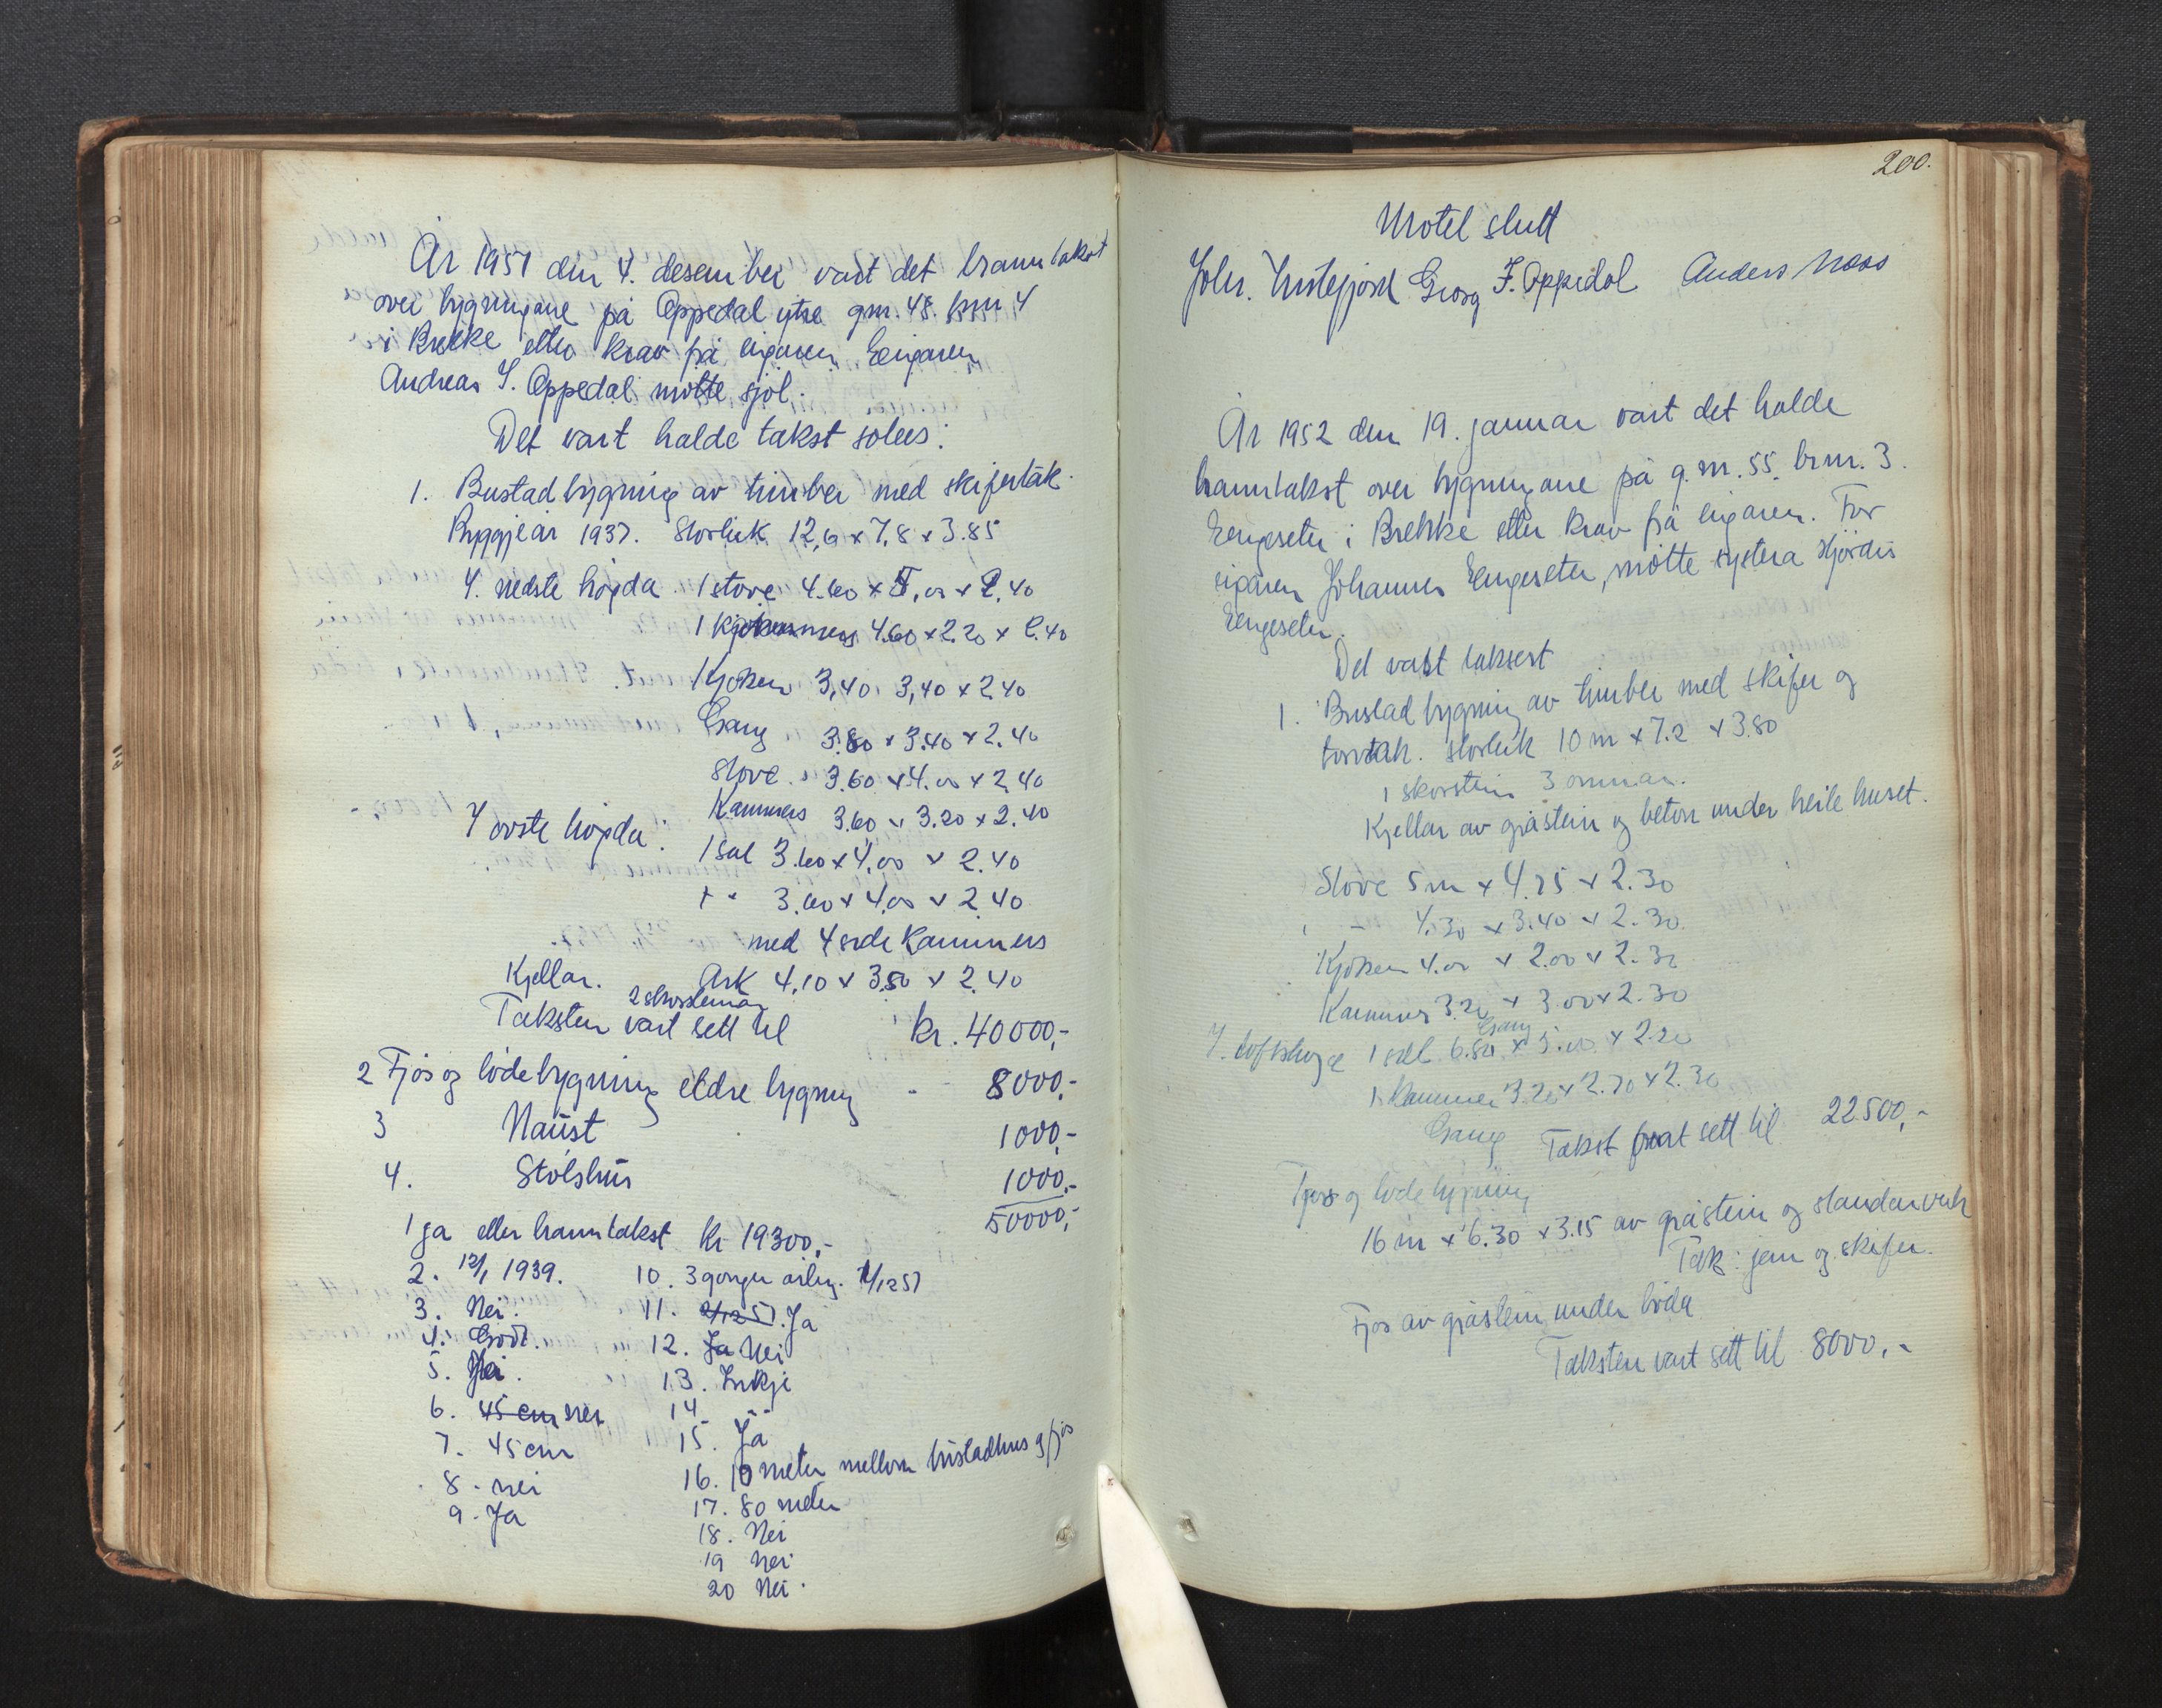 År 1951 den 4. desember vart det branntakst
over bygningane på Oppedal ytre gnr. 48. bnr 4
i Brekke etter krav frå eigaren. Eigaren
Andreas I. Oppedal møtte sjøl.
Det vart halde takst soleis:
1. Bustadbygning av timber med skifertak.
Byggjeår 1937. Storleik 12,6 x 7,8 x 3.85
I. nedste høgda 1 stove 4.60 x 5,00 x 2,40
1 kammers 4.60 x 2.20 x 2.40
1 kjøken 3,40 . 3,40 x 2.40
Gang 3.80 x 3.40 x 2.40
stove . 3.60 x 4.00 x 2,40
Kammers 3.60 x 3.20 x 2.40
I øvste høgda: 1 sal 3.60 x 4,00 x 2.40
3.60 x 4,00 x 2.40
med 4 Kammers
Kjellar. Ark 4.10 x 3.80 x 2.40
2 skorsteinar
Taksten vart sett til kr. 40000,-
2 Fjøs og lødebygning eldre bygning - 8000,-
3 Naust 1000,-
4. Stølshus 1000,-
50000,-
1 ja eller branntakst kr 19300,-
2. 12/1 1939. 10. 3 gonger årleg. 4/12 51
3. Nei. 11. 4/12 51. Ja
4. Godt. 12. Ja Nei
5. Nei. 13. Inkje
6. 45 cm nei 14. - -
7. 45 cm 15. Ja
8. nei 16. 10 meter mellom bustadhus og fjøs
9. Ja 17. 80 meter
18. Nei
19 Nei
20 Nei.
200.
Møtet slutt
Johs. Instefjord Georg F. Oppedal Anders Næss
År 1952 den 19. januar vart det halde
branntakst over bygningane på g.nr. 55. brnr. 3.
Engeseter i Brekke etter krav frå eigaren. For
eigaren Johannes Engeseter, møtte systera Hjørdis
Engeseter.
Det vart taksert
1. Bustadbygning av timber med skifer og
torvtak. Storleik 10 m x 7.2 x 3.80
1 skorstein 3 omnar.
Kjellar av gråstein og betong under heile huset.
Stove 5 m x 4.75 x 2.30
1 - 4.30 x 3.40 x 2.30
Kjøken 4.00 x 2.00 x 2.30
Kammers 3.20 x 3.00 x 2.30
Gang
I. loftshøgde 1 sal 6.80 x 5.00 x 2.20
1 Kammer 3.20 x 2.70 x 2.30
Gang Takst vart sett til 22500,-
Fjøs og lødebygning
16 m x 6.30 x 3.15 av gråstein og standarverk
Tak: jern og skifer.
Fjøs av gråstein under løda
Taksten vart sett til 8000,-